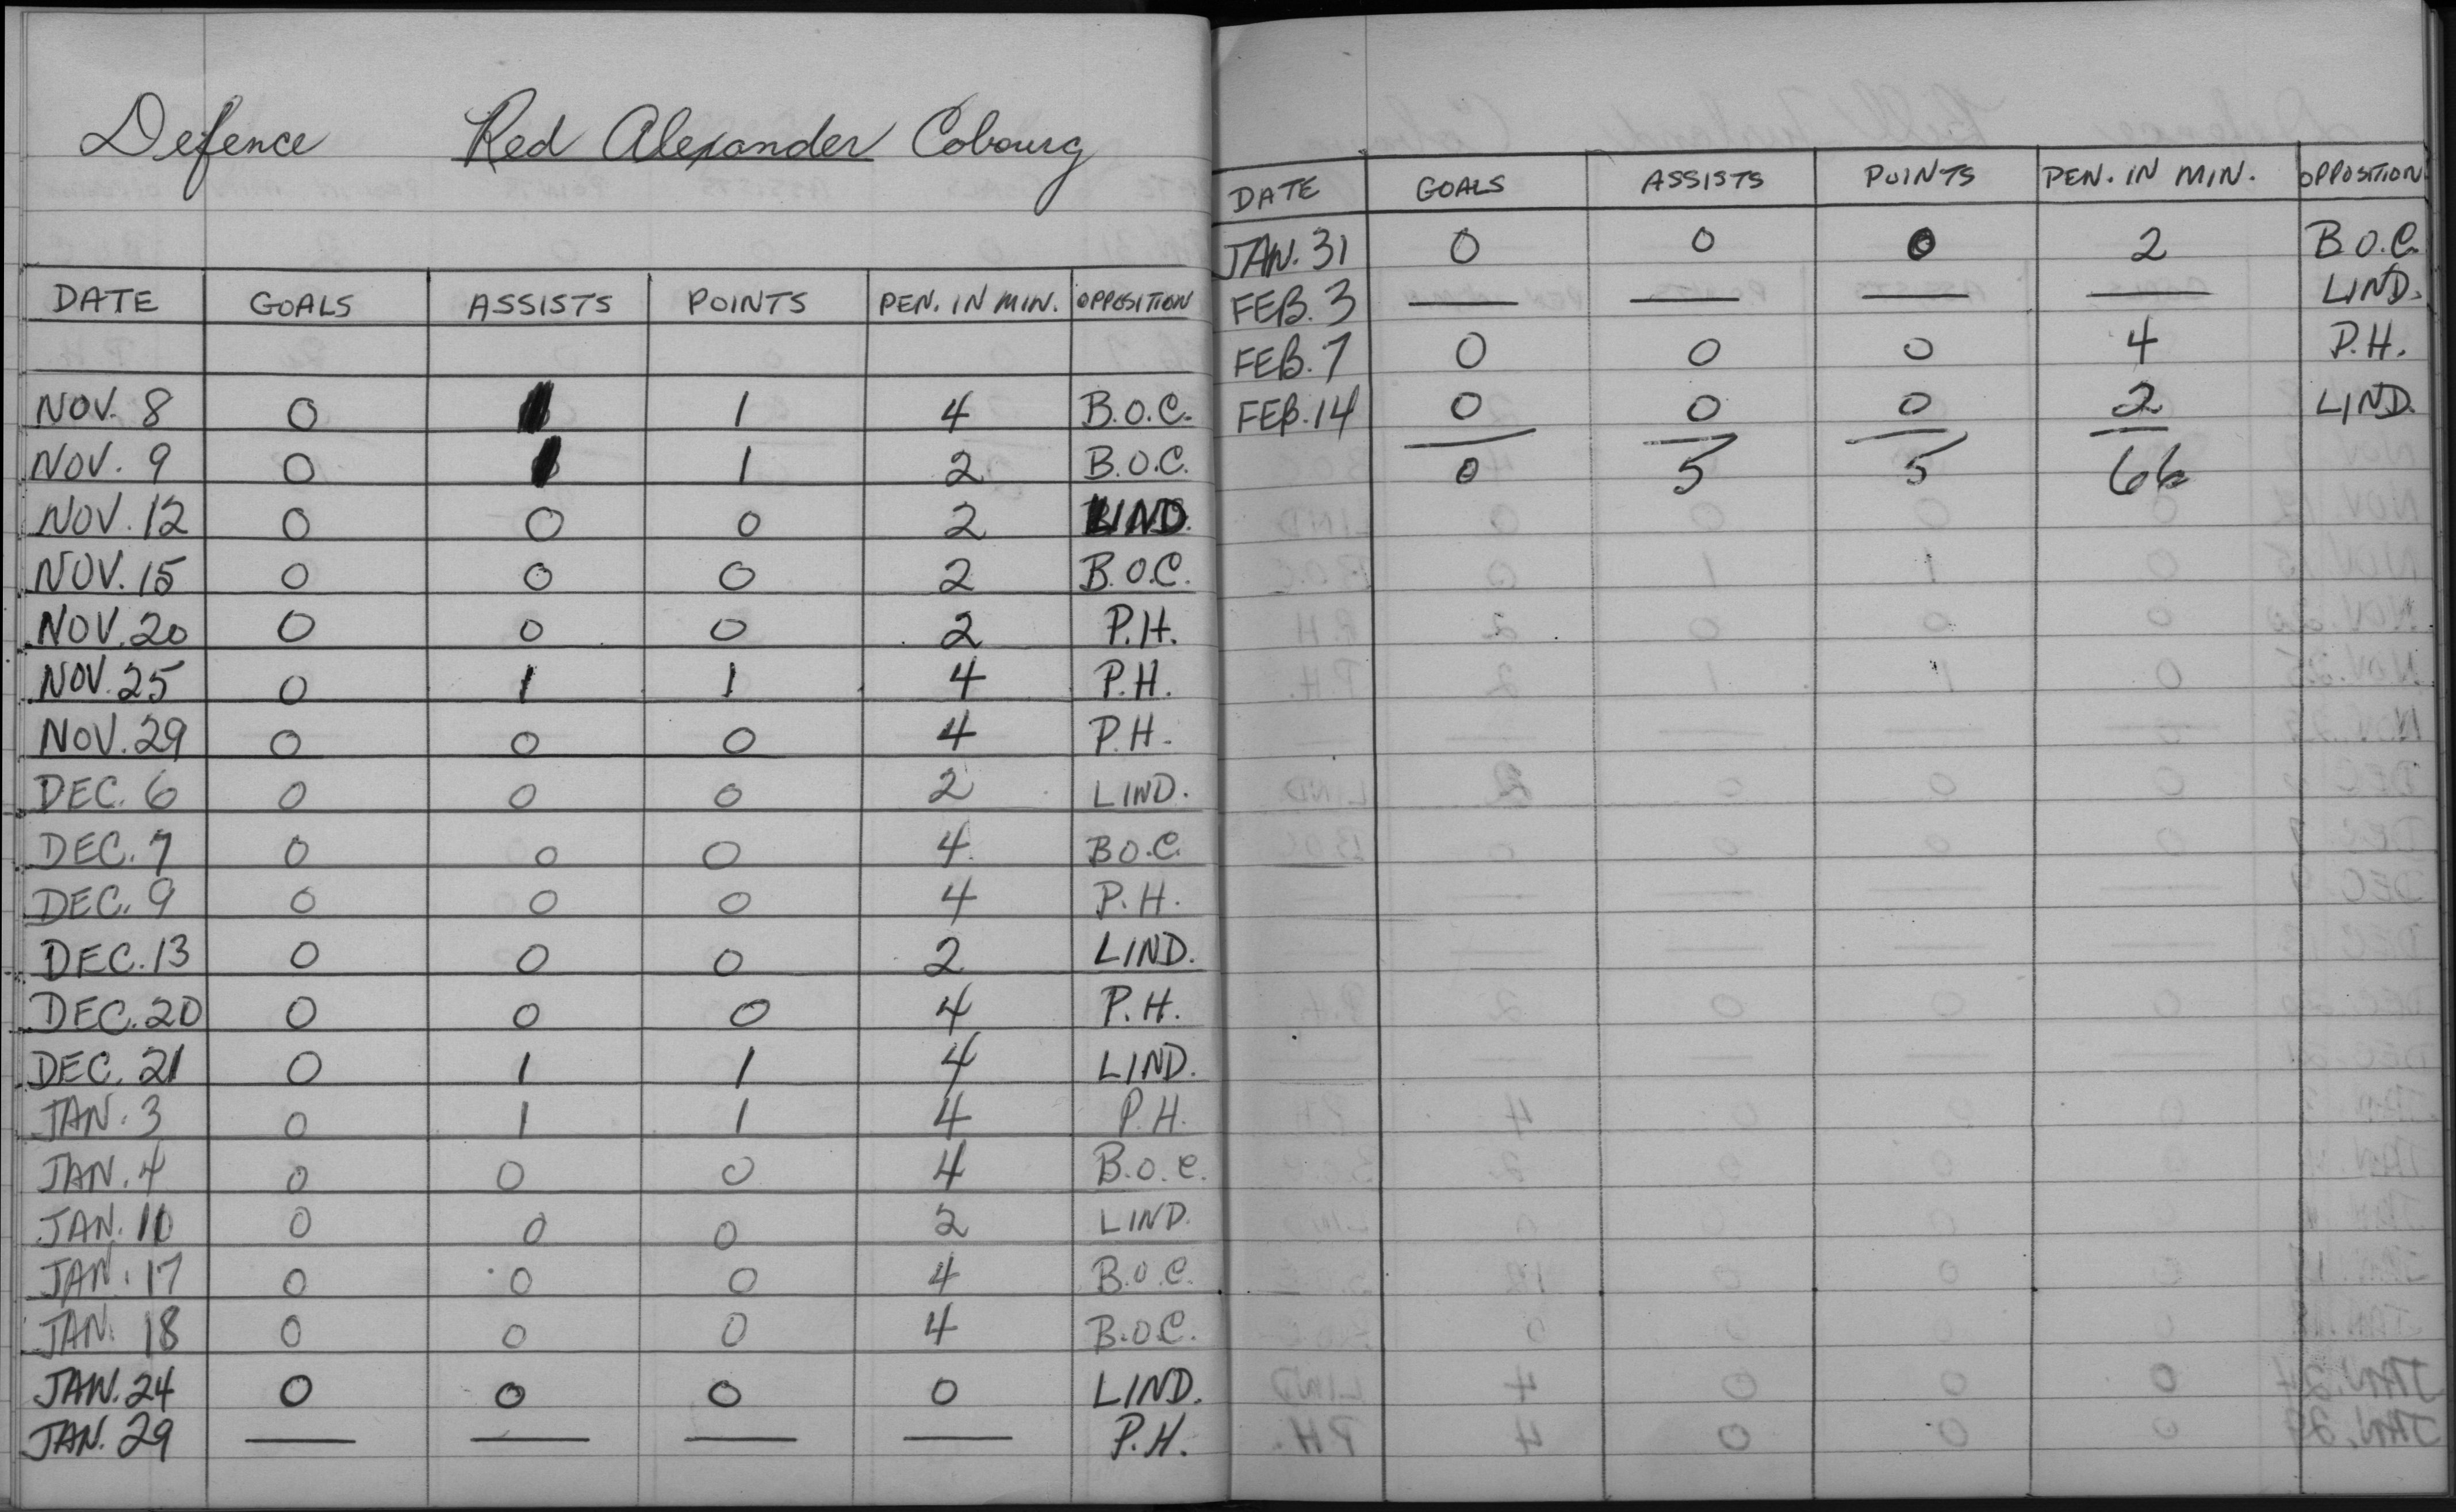 Defence Red Alexander Cobourg
DATE GOALS ASSISTS POINTS PEN. IN MIN. OPPOSITION
NOV. 8 0 1 1 4 B.O.C.
NOV. 9 0 1 1 2 B.O.C.
NOV. 12 0 0 0 2 LIND.
NOV. 15 0 0 0 2 B.O.C.
NOV. 20 0 0 0 2 P.H.
NOV. 25 0 1 1 4 P.H.
NOV. 29 0 0 0 4 P.H.
DEC. 6 0 0 0 2 LIND.
DEC. 7 0 0 0 4 B.O.C.
DEC. 9 0 0 0 4 P.H.
DEC. 13 0 0 0 2 LIND.
DEC. 20 0 0 0 4 P.H.
DEC. 21 0 1 1 4 LIND.
JAN. 3 0 1 1 4 P.H.
JAN. 4 0 0 0 4 B.O.C.
JAN. 10 0 0 0 2 LIND.
JAN. 17 0 0 0 4 B.O.C.
JAN. 18 0 0 0 4 B.O.C.
JAN. 24 0 0 0 0 LIND.
JAN. 29 — — — — P.H.
DATE GOALS ASSISTS POINTS PEN. IN MIN. OPPOSITION
JAN. 31 0 0 0 2 B.O.C.
FEB. 3 — — — — LIND.
FEB. 7 0 0 0 4 P.H.
FEB. 14 0 0 0 2 LIND.
0 5 5 66